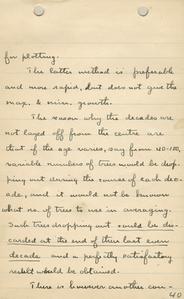 for plotting.
The latter method is preferable
and more rapid, but does not give the
max. & min. growth.
The reason why the decades are
not layed off from the centre are
that if the age varies, say from 40-100,
variable numbers of trees would be drop-
ping out during the course of each dec-
ade, and it would not be known
what no. of trees to use in averaging.
Such trees dropping out could be dis-
carded at the end of their last even
decade and a perfectly satisfactory
result would be obtained.
There is however another con-